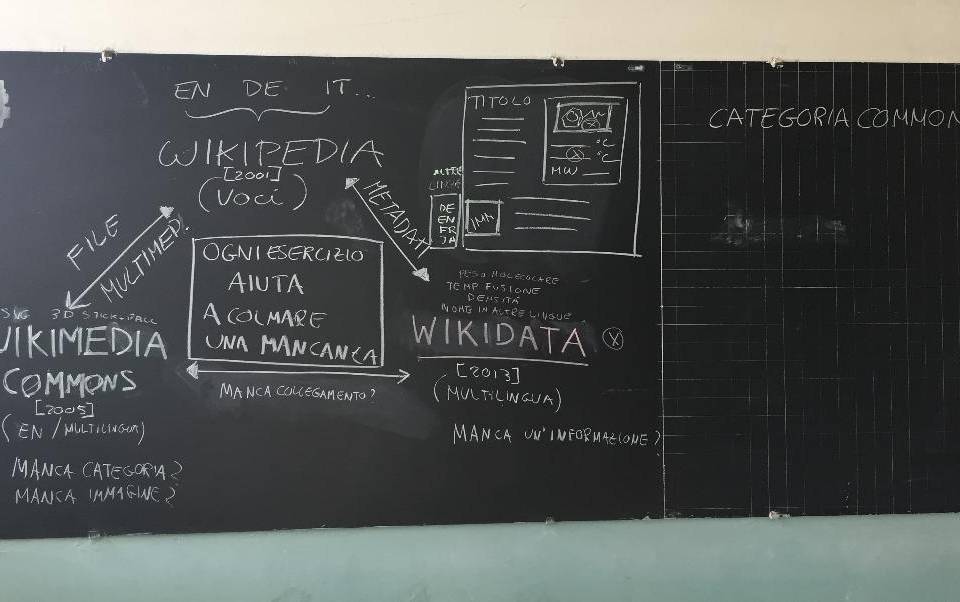 EN DE IT...
WIKIPEDIA
[2001]
(VOCI)
FILE
MULTIMED.
METADATI
OGNI ESERCIZIO
AIUTA
A COLMARE
UNA MANCANZA
MANCA COLLEGAMENTO?
SVG 3D STICK+BALL
WIKIMEDIA
COMMONS
[2005]
(EN/MULTILINGUA)
MANCA CATEGORIA?
MANCA IMMAGINE?
TITOLO
°C
°C
MW
ALTRE
LINGUE
DE
EN
FR
JA
IMM
PESO MOLECOLARE
TEMP FUSIONE
DENSITÀ
NOME IN ALTRE LINGUE
WIKIDATA
[2013]
(MULTILINGUA)
MANCA UN'INFORMAZIONE?
CATEGORIA COMMON